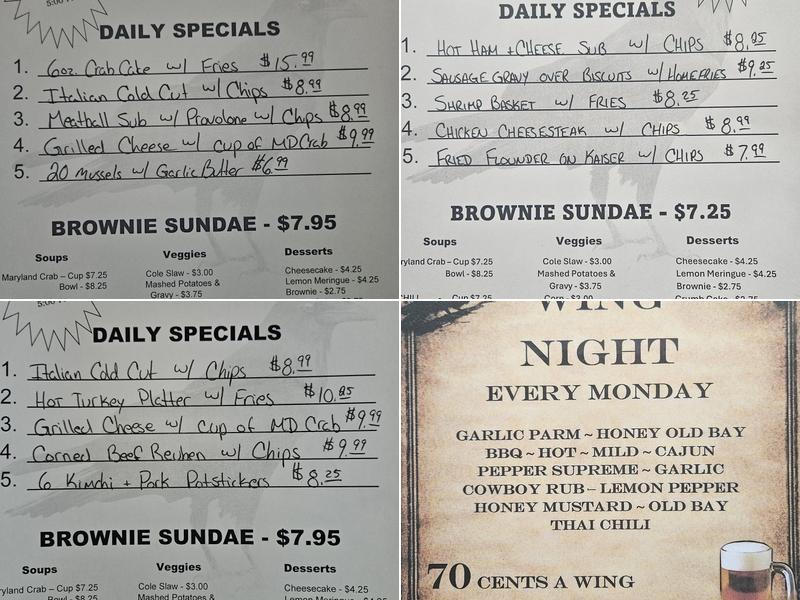 5:00
DAILY SPECIALS
1. 6oz. Crab Cake w/ Fries $15.99
2. Italian Cold Cut w/ Chips $8.99
3. Meatball Sub w/ Provolone w/ Chips $8.99
4. Grilled Cheese w/ cup of MD Crab $9.99
5. 20 mussels w/ Garlic Butter $6.99
BROWNIE SUNDAE - $7.95
Soups
Maryland Crab – Cup $7.25
Bowl - $8.25
Veggies
Cole Slaw - $3.00
Mashed Potatoes &
Gravy - $3.75
Desserts
Cheesecake - $4.25
Lemon Meringue - $4.25
Brownie - $2.75
DAILY SPECIALS
1. HOT HAM + CHEESE SUB w/ CHIPS $8.95
2. SAUSAGE GRAVY OVER BISCUITS w/ HOMEFRIES $9.25
3. SHRIMP BASKET w/ FRIES $8.25
4. CHICKEN CHEESESTEAK w/ CHIPS $8.99
5. FRIED FLOUNDER ON KAISER w/ CHIPS $7.99
BROWNIE SUNDAE - $7.25
Soups
ryland Crab – Cup $7.25
Bowl - $8.25
CHILI Cup $7.25
Veggies
Cole Slaw - $3.00
Mashed Potatoes &
Gravy - $3.75
Corn - $3.00
Desserts
Cheesecake - $4.25
Lemon Meringue - $4.25
Brownie - $2.75
Crumb Cake - $2.75
5:00
DAILY SPECIALS
1. Italian Cold Cut w/ Chips $8.99
2. Hot Turkey Platter w/ Fries $10.25
3. Grilled Cheese w/ Cup of MD Crab $9.99
4. Corned Beef Reuben w/ Chips $9.99
5. 6 Kimchi + Pork Potstickers $8.25
BROWNIE SUNDAE - $7.95
Soups
ryland Crab – Cup $7.25
Bowl - $8.25
Veggies
Cole Slaw - $3.00
Mashed Potatoes &
Desserts
Cheesecake - $4.25
Lemon Meringue - $4.25
WING
NIGHT
EVERY MONDAY
GARLIC PARM ~ HONEY OLD BAY
BBQ ~ HOT ~ MILD ~ CAJUN
PEPPER SUPREME ~ GARLIC
COWBOY RUB – LEMON PEPPER
HONEY MUSTARD ~ OLD BAY
THAI CHILI
70 CENTS A WING